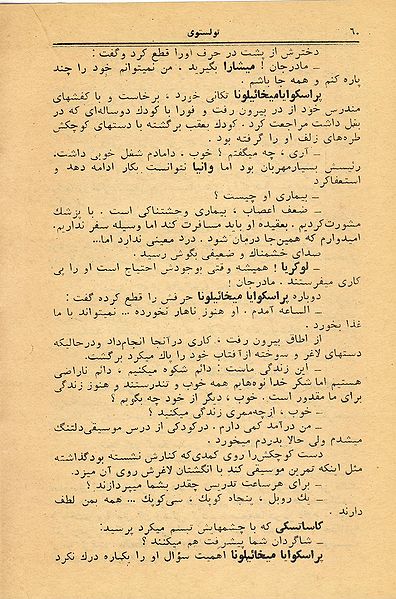 ۶۰
تولستوی
دخترش از پشت در حرف اورا قطع کرد وگفت :
ـ مادرجان ! میشارا بگیرید . من نمیتوانم خود را چند
پاره کنم و همه جا باشم .
پراسکوایامیخائیلونا تکانی خورد ، برخاست و با کفشهای
مندرس خود از در بیرون رفت و فورا با کودك دوساله‌ای که در
بغل داشت مراجعت کرد . کودك بعقب برگشته با دستهای کوچکش
طره‌های زلف او را گرفته بود .
ـ آری ، چه میگفتم ؟ خوب ، دامادم شغل خوبی داشت،
رئیسش بسیارمهربان بود اما وانیا نتوانست بکار ادامه دهد و
استعفاکرد
ـ بیماری او چیست ؟
ـ ضعف اعصاب ، بیماری وحشتناکی است . با پزشك
مشورت‌کردیم . بعقیده او باید مسافرت کند اما وسیله سفر نداریم.
امیدوارم که همین‌جا درمان شود . درد معینی ندارد اما...
صدای خشمناك و ضعیفی بگوش رسید .
ـ لوکریا ! همیشه وقتی بوجودش احتیاج است او را پی
کاری میفرستند . مادرجان !
دوباره پراسکوایا میخائیلونا حرفش را قطع کرده گفت :
ـ الساعه آمدم . او هنوز ناهار نخورده ... نمیتواند با ما
غذا بخورد .
از اطاق بیرون رفت ، کاری درآنجا انجام‌داد ودرحالیکه
دستهای لاغر و سوخته ازآفتاب خود را پاك میکرد برگشت.
ـ این زندگی ماست : دائم شکوه میکنیم ، دائم ناراضی
هستیم اما شکر خدا نوه‌هایم همه خوب و تندرستند و هنوز زندگی
برای ما مقدور است . خوب ، دیگر از خود چه بگویم ؟
ـ خوب ، ازچه‌ممری زندگی میکنید ؟
ـ من درآمد کمی دارم . درکودکی از درس موسیقی‌دلتنگ
میشدم ولی حالا بدردم میخورد .
دست کوچکش‌را روی کمدی‌که کنارش نشسته بودگذاشته
مثل اینکه تمرین موسیقی کند با انگشتان لاغرش روی آن میزد.
ـ برای هرساعت تدریس چقدر بشما میپردازند ؟
ـ یك روبل ، پنجاه کوپك ، سی‌کوپك ... همه بمن لطف
دارند .
کاساتسکی که با چشمهایش تبسم میکرد پرسید:
ـ شاگردان شما پیشرفت هم میکنند ؟
پراسکوایا میخائیلونا اهمیت سؤال او را یکباره درك نکرد